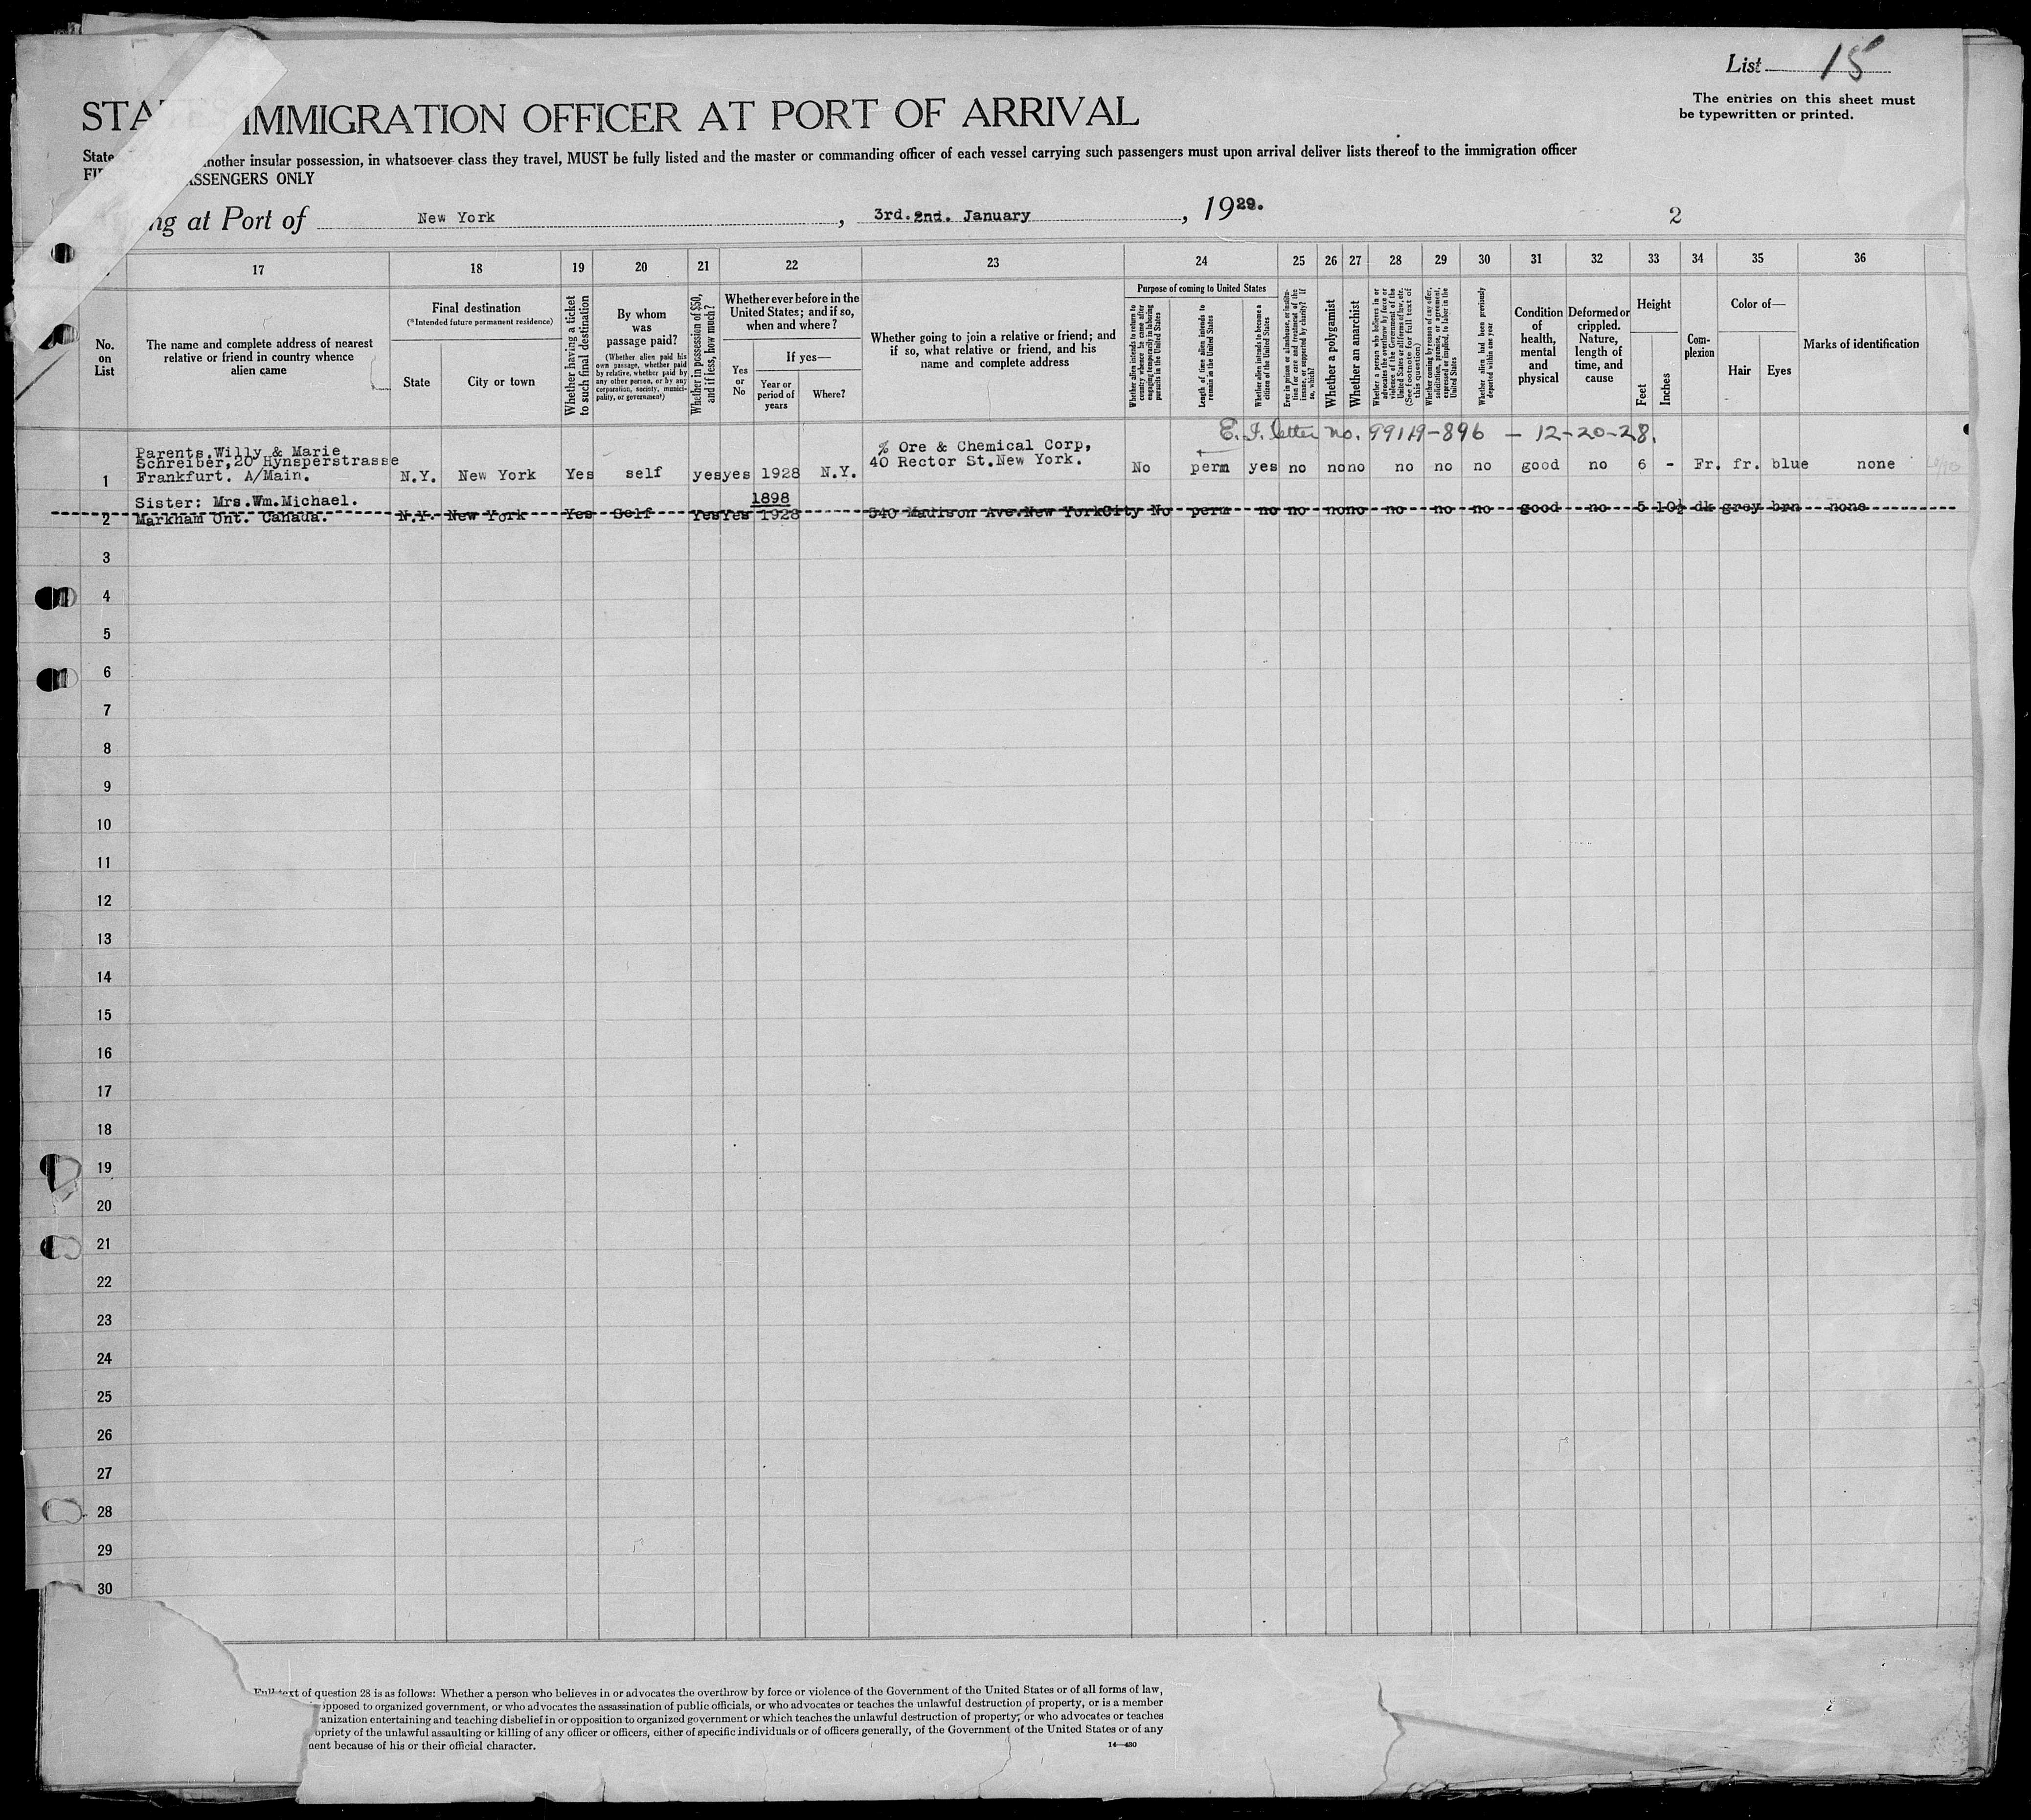 List 15
The entries on this sheet must
be typewritten or printed.
STATES IMMIGRATION OFFICER AT PORT OF ARRIVAL
State another insular possession, in whatsoever class they travel, MUST be fully listed and the master or commanding officer of each vessel carrying such passengers must upon arrival deliver lists thereof to the immigration officer
PASSENGERS ONLY
ng at Port of New York , 3rd. 2nd. January , 1929.
2
17 18 19 20 21 22 23 24 25 26 27 28 29 30 31 32 33 34 35 36
No.
on
List
The name and complete address of nearest
relative or friend in country whence
alien came
Final destination
(*Intended future permanent residence)
State
City or town
Whether having a ticket
to such final destination
By whom
was
passage paid?
(Whether alien paid his
own passage, whether paid
by relative, whether paid by
any other person, or by any
corporation, society, munici-
pality, or government)
Whether in possession of $50,
and if less, how much?
Whether ever before in the
United States; and if so,
when and where?
Yes
or
No
If yes—
Year or
period of
years
Where?
Whether going to join a relative or friend; and
if so, what relative or friend, and his
name and complete address
Purpose of coming to United States
Whether alien intends to return to
country whence he came after
engaging temporarily in laboring
pursuits in the United States
Length of time alien intends to
remain in the United States
Whether alien intends to become a
citizen of the United States
Ever in prison or almshouse, or institu-
tion for care and treatment of the
insane, or supported by charity? If
so, which?
Whether a polygamist
Whether an anarchist
Whether a person who believes in or
advocates the overthrow by force or
violence of the Government of the
United States or all forms of law, etc.
(See footnote for full text of
this question)
Whether coming by reason of any offer,
solicitation, promise, or agreement,
expressed or implied, to labor in the
United States
Whether alien had been previously
deported within one year
Condition
of
health,
mental
and
physical
Deformed or
crippled.
Nature,
length of
time, and
cause
Height
Feet
Inches
Com-
plexion
Color of—
Hair
Eyes
Marks of identification
E. I. letter no. 99119-896 - 12-20-28.
Parents.Willy & Marie
Schreiber,20 Hynsperstrasse
1 Frankfurt. A/Main. N.Y. New York Yes self yes yes 1928 N.Y. % Ore & Chemical Corp,
40 Rector St.New York. No perm yes no no no no no no good no 6 - Fr. fr. blue none
Sister: Mrs.Wm.Michael. 1898
2 Markham Ont. Canada. N.Y. New York Yes Self Yes Yes 1928 540 Madison Ave.New YorkCity No perm no no no no no no no good no 5 10½ dk grey brn none
3
4
5
6
7
8
9
10
11
12
13
14
15
16
17
18
19
20
21
22
23
24
25
26
27
28
29
30
Full text of question 28 is as follows: Whether a person who believes in or advocates the overthrow by force or violence of the Government of the United States or of all forms of law,
opposed to organized government, or who advocates the assassination of public officials, or who advocates or teaches the unlawful destruction of property, or is a member
anization entertaining and teaching disbelief in or opposition to organized government or which teaches the unlawful destruction of property, or who advocates or teaches
opriety of the unlawful assaulting or killing of any officer or officers, either of specific individuals or of officers generally, of the Government of the United States or of any
ment because of his or their official character.
14—480